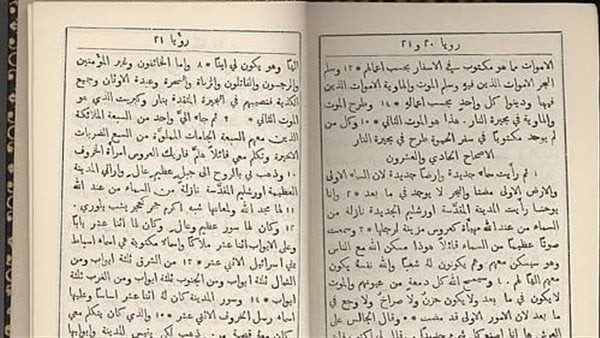 رويا ٢٠ و ٢١
الاموات ما هو مكتوب في الاسفار بحسب اعمالهم * ١٣ وسلم
البحر الاموات الذين فيهِ وسلم الموت والهاوية الاموات الذين
فيهما ودينوا كل واحد بحسب اعمالهِ * ١٤ وطرح الموت
والهاوية في بحيرة النار. هذا هو الموت الثاني * ١٥ وكل من
لم يوجد مكتوبًا في سفر الحيوة طرح في بحيرة النار
الاصحاح الحادي والعشرون
١ ثم رأيت سماء جديدة وارضًا جديدة لان السماء الاولى
والارض الاولى مضتا والبحر لا يوجد في ما بعد * ٢ وانا
يوحنا رأيت المدينة المقدّسة اورشليم الجديدة نازلة من
السماء من عند الله مهيأة كعروس مزينة لرجلها * ٣ وسمعت
صوتًا عظيمًا من السماء قائلاً هوذا مسكن الله مع الناس
وهو سيسكن معهم وهم يكونون لهُ شعبًا والله نفسهُ يكون
معهم الهًا لهم * ٤ وسيمسح الله كل دمعة من عيونهم والموت
لا يكون في ما بعد ولا يكون حزن ولا صراخ ولا وجع في
ما بعد لان الامور الاولى قد مضت * ٥ وقال الجالس على
العرش ها انا اصنع كل شيء جديدًا
رؤيا ٢١
الهًا وهو يكون لي ابنًا * ٨ واما الخائفون وغير المؤمنين
والرجسون والقاتلون والزناة والسحرة وعبدة الاوثان وجميع
الكذبة فنصيبهم في البحيرة المتقدة بنار وكبريت الذي هو
الموت الثاني * ٩ ثم جاء اليَّ واحد من السبعة الملائكة
الذين معهم السبعة الجامات المملوَّة من السبع الضربات
الاخيرة وتكلم معي قائلاً هلمَّ فاريك العروس امرأة الخروف
١٠ وذهب بي بالروح الى جبل عظيم عالٍ واراني المدينة
العظيمة اورشليم المقدَّسة نازلة من السماء من عند الله
١١ لها مجد الله ولمعانها شبه اكرم حجر كحجر يشب بلوري *
١٢ وكان لها سور عظيم وعالٍ وكان لها اثنا عشر بابًا
وعلى الابواب اثنا عشر ملاكًا واسماء مكتوبة هي اسماء اسباط
بني اسرائيل الاثني عشر * ١٣ من الشرق ثلثة ابواب ومن
الشمال ثلثة ابواب ومن الجنوب ثلثة ابواب ومن الغرب ثلثة
ابواب * ١٤ وسور المدينة كان لهُ اثنا عشر اساسًا وعليها
اسماء رسل الخروف الاثني عشر * ١٥ والذي كان يتكلم معي
كان معهُ قصبة من ذهب لكي يقيس المدينة وابوابها